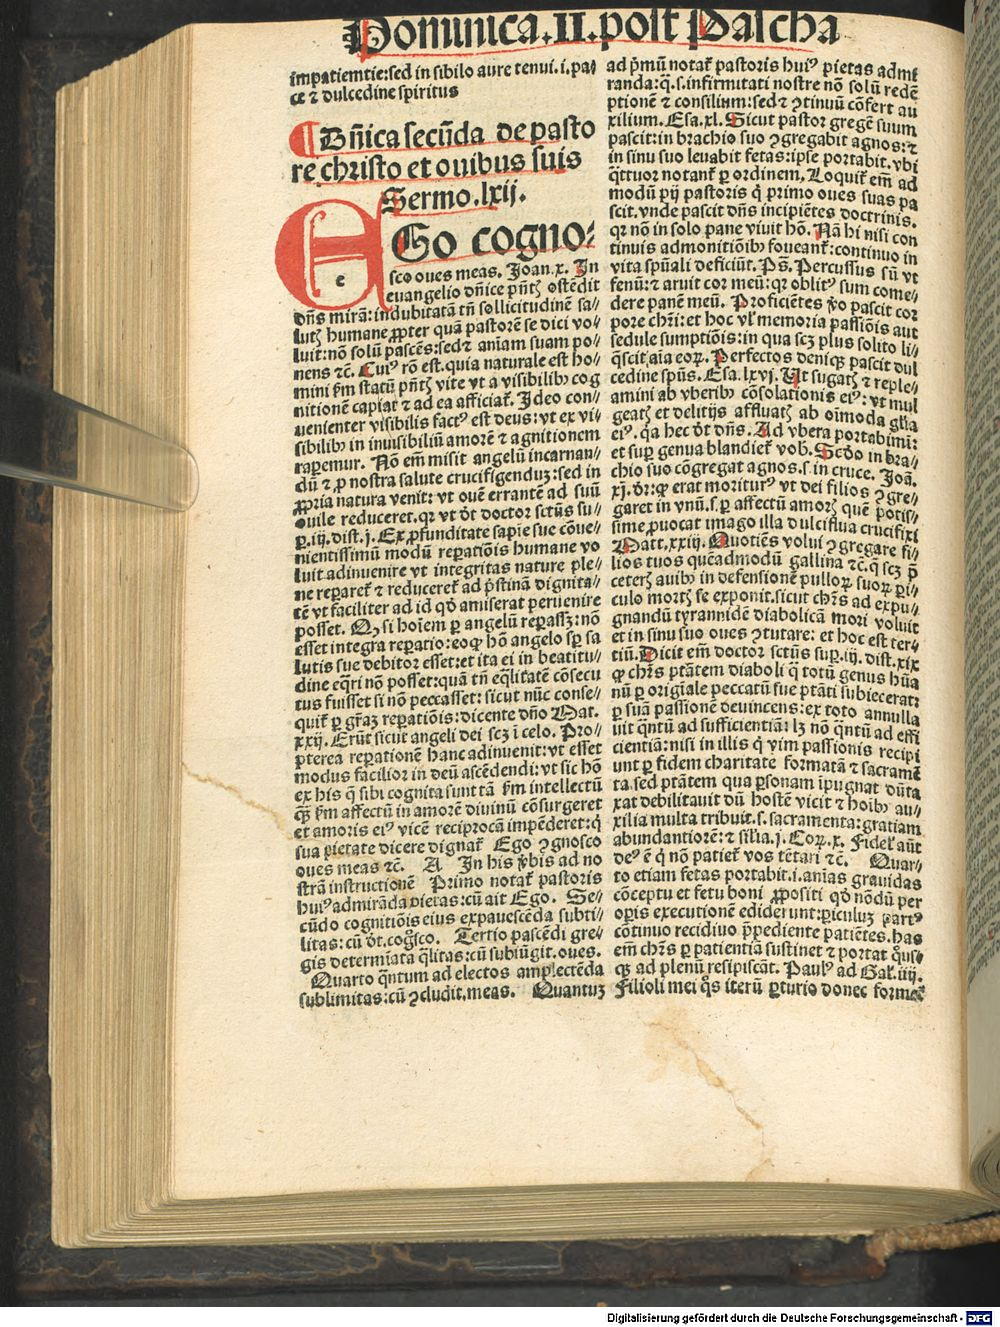 Dominica.II.post Pascha
impatiemtie:sed in sibilo aure tenui.i.pa⸗
ce ⁊ dulcedine spiritus
¶ Dñica secũda de pasto
re christo et ouibus suis
Sermo.lxij.
EGo cogno⸗
e
sco oues meas. Joan.x. In
euangelio dñice pñtꝫ ostẽdit
dñs mirã: indubitatã tñ sollicitudinẽ sa⸗
lutꝫ humane ꝓpter quã pastorẽ se dici vo⸗
luit: nõ solũ pascẽs: sed ⁊ aniam suam po⸗
nens ⁊c. Cuiꝰ rõ est. quia naturale est ho⸗
mini ẜm statũ pñtꝫ vite vt a visibilibꝫ cog
nitionẽ capiat ⁊ ad ea afficiat᷑. Ideo con⸗
uenienter visibilis factꝰ est deus: vt ex vi⸗
sibilibꝫ in inuisibiliũ amorẽ ⁊ agnitionem
raperemur. Nõ em̃ misit angelũ incarnan⸗
dũ ⁊ ꝓ nostra salute crucifigenduꝫ: sed in
ꝓpria natura venit: vt ouẽ errantẽ ad suũ
ouile reduceret. qꝛ vt dt doctor sctũs su⸗
ꝑ.iij.dist.j. Ex ꝓfunditate sapiẽ sue cõue⸗
nientissimũ modũ reꝑatiõis humane vo
luit adinuenire vt integritas nature ple⸗
ne reparet᷑ ⁊ reduceret᷑ ad p̃stinã dignita⸗
tẽ vt faciliter ad id qd amiserat peruenire
posset. Qꝫ si hoĩem ꝑ angelũ reꝑassꝫ: nõ
esset integra reꝑatio: eo ꝙ hõ angelo sꝑ sa
lutis sue debitor esset: et ita ei in beatitu⸗
dine eq̃ri nõ posset: quã tñ eq̃litatẽ cõsecu
tus fuisset si nõ peccasset: sicut nũc conse⸗
quit᷑ ꝑ gr̃aꝫ reꝑatiõis: dicente dño Mat.
xxij. Erũt sicut angeli dei scꝫ ĩ celo. Pro⸗
pterea reꝑationẽ hanc adinuenit: vt esset
modus facilior in deũ ascẽdendi: vt sic hõ
ex his q̃ sibi cognita sunt tã ẜm intellectũ
qꝫ̃ ẜm affectũ in amorẽ diuinũ cõsurgeret
et amoris eiꝰ vicẽ reciprocã impẽderet: q̃
sua pietate dicere dignat᷑ Ego ꝯgnosco
oues meas ⁊c. A In his v̾bis ad no
strã instructionẽ Primo notat᷑ pastoris
huiꝰ admirãda pietas: cũ ait Ego. Se⸗
cũdo cognitiõis eius expauescẽda subti⸗
litas: cũ dt. cogͦsco. Tertio pascẽdi gre⸗
gis determĩata q̃litas: cũ subiũgit. oues.
Quarto q̃ntum ad electos amplectẽda
sublimitas: cũ ꝯcludit. meas. Quantuꝫ
ad p̃mũ notat᷑ pastoris huiꝰ pietas admi
randa: q̃.s. infirmitati nostre nõ solũ redẽ
ptionẽ ⁊ consilium: sed ⁊ ꝯtinuũ cõfert au
xilium. Esa.xl. Sicut pastor gregẽ suum
pascit: in brachio suo ꝯgregabit agnos: ⁊
in sinu suo leuabit fetas: ipse portabit. vbi
q̃ttuor notant᷑ ꝑ ordinem. Loquit᷑ em̃ ad
modũ pij pastoris q̃ primo oues suas pa
scit. vnde pascit dñs incipiẽtes doctrinis.
qꝛ nõ in solo pane viuit hõ. Nã hi nisi con
tinuis admonitiõibꝫ foueant᷑: continuo in
vita spũali deficiũt. Ps̃. Percussus sũ vt
fenũ: ⁊ aruit cor meũ: qꝛ oblitꝰ sum come⸗
dere panẽ meũ. Proficiẽtes v̾o pascit cor
pore chr̃i: et hoc vl̾ memoria passiõis aut
sedule sumptiõis: in qua scꝫ plus solito li⸗
q̃scit aĩa eoꝝ. Perfectos deniqꝫ pascit dul
cedine spũs. Esa.lxvj. Ut sugatꝫ ⁊ reple⸗
amini ab vberibꝫ cõsolationis eiꝰ: vt mul
geatꝫ et delitijs affluatꝫ ab oĩmoda gl̃ia
eiꝰ. q̃a hec dt dñs. Ad vbera portabimĩ:
et suꝑ genua blandiet᷑ vobꝫ. Scdo in bra⸗
chio suo cõgregat agnos.s. in cruce. Joã.
xj. dr̃: ꝙ erat moriturꝰ vt dei filios ꝯgre⸗
garet in vnũ.s. ꝑ affectũ amorꝫ quẽ potis⸗
sime ꝓuocat imago illa dulciflua crucifixi
Matt.xxiij. Quotiẽs volui ꝯgregare fi⸗
lios tuos quẽadmodũ gallina ⁊c. q̃ scꝫ p̃
ceterꝫ auibꝫ in defensionẽ pulloꝝ suoꝝ ꝑi⸗
culo mortꝫ se exponit. sicut chr̃s ad expu⸗
gnandũ tyrannidẽ diabolicã mori voluit
et in sinu suo oues ꝯtutare: et hoc est ter⸗
tiũ. Dicit em̃ doctor sctũs suꝑ.iij.dist.xix
ꝙ chr̃s ptãtem diaboli q̃ totũ genus hũa
nũ ꝑ origĩale peccatũ sue ptãti subiecerat:
ꝑ suã passionẽ deuincens: ex toto annulla
uit q̃ntũ ad sufficientiã: lꝫ nõ q̃ntũ ad effi
cientiã: nisi in illis q̃ vim passionis recipi
unt ꝑ fidem charitate formatã ⁊ sacramẽ
ta. sed ptãtem qua ꝑsonam ĩpugnat dũta
xat debilitauit dũ hostẽ vicit ⁊ hoĩbꝫ au⸗
xilia multa tribuit.s. sacramenta: gratiam
abundantiorẽ: ⁊ sĩlia.j. Coꝝ.x. Fidel̾ aũt
deꝰ ẽ q̃ nõ patiet᷑ vos tẽtari ⁊c. Quar⸗
to etiam fetas portabit.i. aniãs grauidas
cõceptu et fetu boni ꝓpositi qͦ nõdũ per
oꝑis executionẽ ediderunt: ꝑiculuꝫ partꝰ
cõtinuo recidiuo p̃pediente patiẽtes. has
em̃ chr̃s ꝑ patientiã sustinet ⁊ portat q̃us⸗
qꝫ ad plenũ resipiscãt. Paulꝰ ad Gal̾.iiij.
Filioli mei qͦs iterũ ꝑturio donec forme⸗
Digitalisierung gefördert durch die Deutsche Forschungsgemeinschaft - DFG